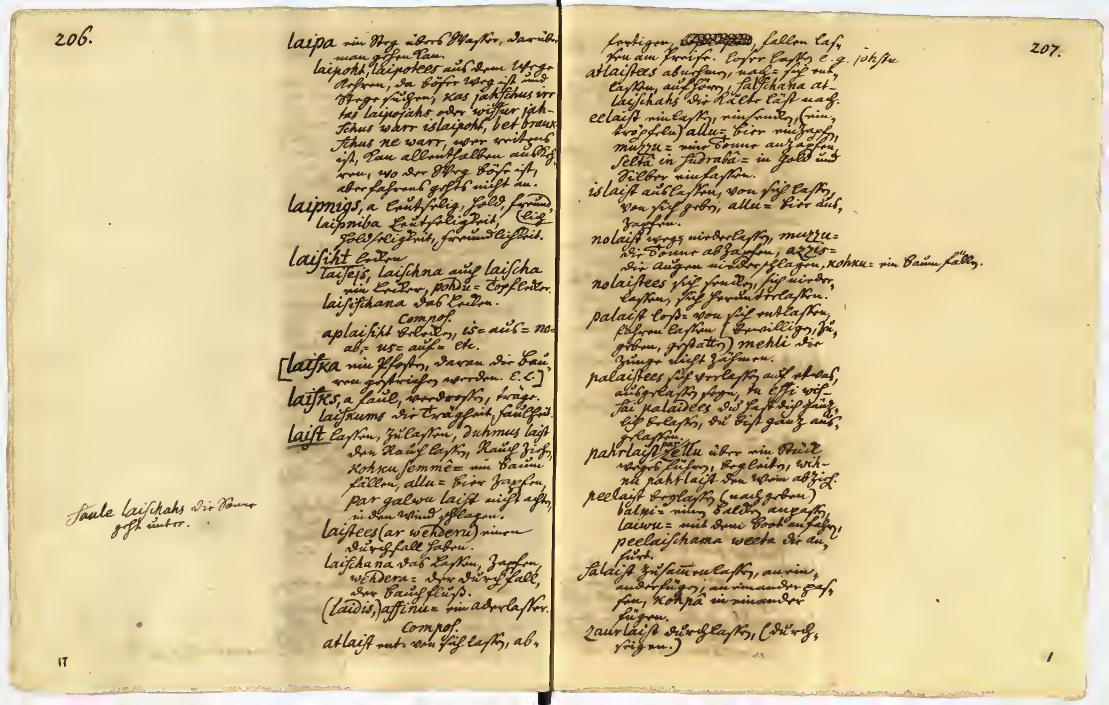 206.
laipa ein Steg übers Wasser, darüber
man gehen kan.
laipoht, laipotees aus dem Wege
kehren, da böser Weg ist und
Stege suchen, kas jahschus irr
tas laipojahs oder wissur jah-
schus warr islaipoht, bet brauk-
schus ne warr, wer reitens
ist, kan allenthalben auskeh-
ren, wo der Weg böse ist,
aber fahrens gehts nicht an.
laipnigs, a leutselig, hold freund-
lich
laipniba Leutseligkeit,
holdseligkeit, freundlichkeit.
laisiht lecken
laisejs, laischna auch laischa
ein Lecker, pohdu= Topflecker.
laisischana das Lecken.
Compos.
aplaisiht belecken, is= aus= no=
ab,= us= auf= etc.
[laiska ein Pfosten, daran die Bau-
ren gestrichen werden. E. L.]
laisks, a faul, verdrossen, träge.
laiskums die Trägheit, faulheit.
laist lassen, zulassen, duhmus laist
den Rauch lassen,
kohku semmê= ein Baum
fällen, allu= bier zapfen,
par galwu laist nicht achten,
in den Wind schlagen.
laistees (ar wehderu) einen
Durchfall haben.
laischana das Lassen, Zapfen,
wehdera= der Durchfall,
der Bauchfluß.
(laidis,) assinu= ein aderlasser.
Compos.
atlaist ent= von sich lassen, ab=
Saule laischahs die Sonne
geht unter.
17
207.
fertigen, fallen las-
sen am Preise. loser lassen e. g. johstu
atlaistees abnehmen, nach= sich ent-
lassen, aufhören, salschana at-
laischahs die Kälte läst nach.
eelaist einlassen, einsenken, (ein-
tröpfeln) allu= bier einzapfen,
muzzu= eine Tonne anzapfen,
seltâ in sudrabâ= in Gold und
Silber einfassen.
islaist auslassen, von sich lassen,
von sich geben, allu= bier aus-
zapfen.
nolaist weg= niederlassen, muzzu=
die Tonne abzapfen, azzis=
die Augen niederschlagen, kohku= ein Baum fällen.
nolaistees sich senken, sich nieder-
lassen, sich herunterlassen.
palaist loß= von sich entlassen,
fahren lassen (bewilligen, zu-
geben, gestatten) mehli die
Zunge nicht zähmen.
palaistees sich verlassen auf etwas,
ausgelassen seyn, tu essi wis-
sai palaidees du hast dich gäntz-
lich verlassen, du bist gantz aus-
gelassen.
pahrlaist zellu über ein Stück
weges führen, begleiten, wih-
nu pahrlaist den Wein abzieh.
peelaist beylassen (nachgeben)
balki= einen Balken anpassen,
laiwu= mit dem Boot anfahren,
peelaischama weeta die an-
furt.
salaist zusammenlassen, anein-
anderfügen, in einander pas-
sen, kohpâ in einander
fügen.
zaurlaist durchlassen, (durch-
seigen.)